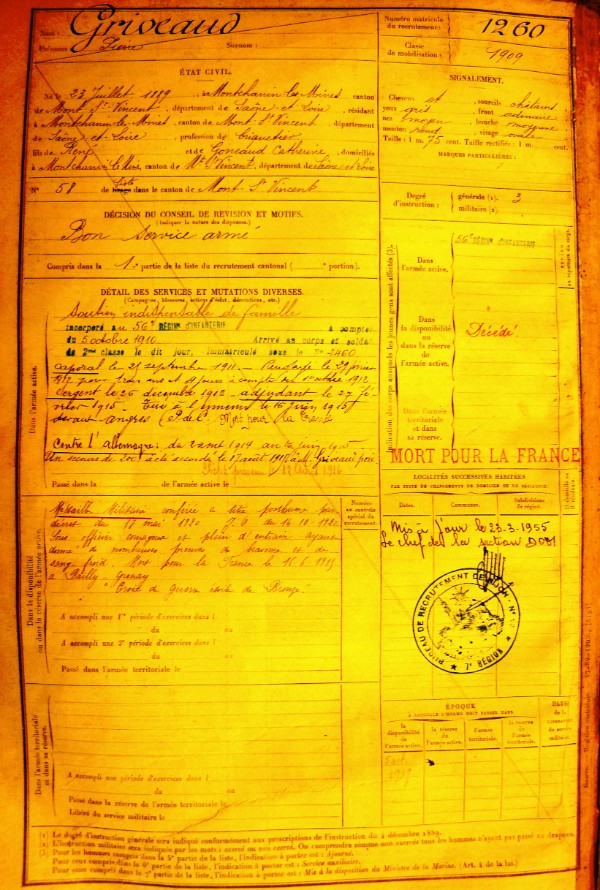 Nom : Griveaud
Prénoms : Pierre Surnom :
Numéro matricule du recrutement : 1260
Classe de mobilisation : 1909
ÉTAT CIVIL.
Né le 23 Juillet 1889, à Montchanin les Mines, canton
de Mont St Vincent, département de Saône et Loire, résidant
à Montchanin les Mines, canton de Mont St Vincent, département
de Saône et Loire, profession de
fils de René et de Goneaud Catherine, domiciliés
à Montchanin les Mines, canton de Mt St Vincent, département de Saône et Loire
N° 58 de Liste dans le canton de Mont St Vincent
SIGNALEMENT.
Cheveux et sourcils châtains
yeux gris, front ordinaire
nez moyen, bouche moyenne
menton rond, visage ovale
Taille : 1 m. 75 cent. Taille rectifiée : 1 m. cent.
MARQUES PARTICULIÈRES :
Degré d'instruction : générale (1). 3
militaire (2).
DÉCISION DU CONSEIL DE REVISION ET MOTIFS.
(Indiquer la nature des dispenses.)
Bon service armé
Compris dans la 1e partie de la liste du recrutement cantonal ( portion).
DÉTAIL DES SERVICES ET MUTATIONS DIVERSES.
(Campagnes, blessures, actions d'éclat, décorations, etc.)
Soutien indispensable de famille
incorporé au 56e RÉGIMENT D'INFANTERIE à compter
du 5 octobre 1910. Arrivé au corps et soldat
de 2ème classe le dit jour, immatriculé sous le N° 2460
caporal le 25 septembre 1911.
1912 pour trois ans et à compter du 1er octobre 1912
Sergent le 26 décembre 1912 - adjudant le 27
1915. Tué à l'ennemi le 16 juin 1915
devant angres (P. de C.) Mort pour la France
Contre l'Allemagne: du 2 août 1914 au 16 juin 1915
Un secours de 200f a été accordé le
Passé dans la de l'armée active le
Dans l'armée active.
56e RÉGIMENT D'INFANTERIE
Dans la disponibilité ou dans la réserve de l'armée active.
Décédé
MORT POUR LA FRANCE
LOCALITÉS SUCCESSIVES HABITÉES
PAR SUITE DE CHANGEMENTS DE DOMICILE OU DE RÉSIDENCE.
Dates. Communes. Subdivisions de région.
Mis à jour le 23-3-1955
Le chef de la section
BUREAU DE RECRUTEMENT DE DIJON
RÉGION
Numéro au contrôle spécial du recrutement.
Médaille Militaire conférée à titre posthume par
décret du 17 mai 1920 J.O. du 14.10.1920
Sous officier courageux et plein d'entrain ayant
donné de nombreuses preuves de bravoure et de
sang froid. Mort pour la France le 16.6.1915
à Bully-Grenay
Croix de guerre étoile de Bronze.
Dans la disponibilité ou dans la réserve de l'armée active.
A accompli une 1re période d'exercices dans l
du au
A accompli une 2e période d'exercices dans l
du au
Passé dans l'armée territoriale le
Dans l'armée territoriale et dans sa réserve.
A accompli une période d'exercices dans l
du au
Passé dans la réserve de l'armée territoriale le
Libéré du service militaire le
ÉPOQUE
À LAQUELLE L'HOMME DOIT PASSER DANS
la disponibilité de l'armée active. la réserve de l'armée active. l'armée territoriale. la réserve de l'armée territoriale.
DATE de la libération du service militaire.
(1) Le degré d'instruction générale sera indiqué conformément aux prescriptions de l'instruction du 4 décembre 1889.
(2) L'instruction militaire sera indiquée par les mots : exercé ou non exercé. On comprendra comme non exercés tous les hommes n'ayant pas passé au drapeau.
(3) Pour les hommes compris dans la 5e partie de la liste, l'indication à porter est : Ajourné.
Pour ceux compris dans la 6e partie de la liste, l'indication à porter est : Service auxiliaire.
Pour ceux compris dans la 7e partie de la liste, l'indication à porter est : Mis à la disposition du Ministre de la Marine. (Art. 4 de la loi.)